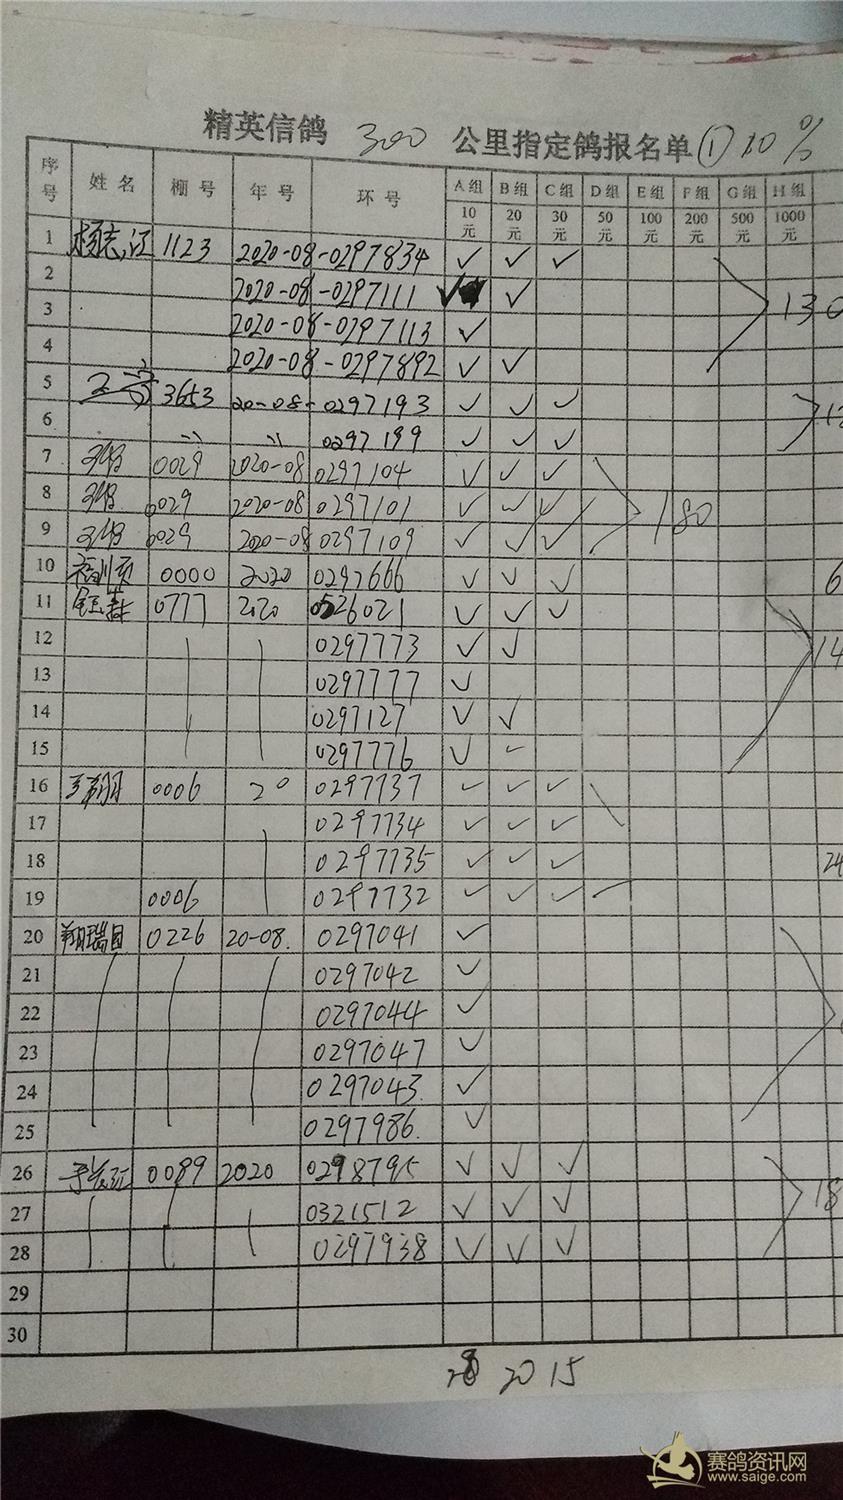 精英信鸽 300 公里指定鸽报名单 ① 10%
序号 姓名 棚号 年号 环号 A组 B组 C组 D组 E组 F组 G组 H组
10元 20元 30元 50元 100元 200元 500元 1000元
1 杨志江 1123 2020-08-0297834 ✓ ✓ ✓
2 2020-08-0297111 ✓ ✓
3 2020-08-0297113 ✓ 130
4 2020-08-0297892 ✓ ✓
5 3653 20-08-0297193 ✓ ✓ ✓
6 0297199 ✓ ✓ ✓
7 0029 2020-08 0297104 ✓ ✓ ✓
8 0029 2020-08 0297101 ✓ ✓ ✓ 180
9 0029 2020-08 0297109 ✓ ✓ ✓
10 0000 2020 0297666 ✓ ✓ ✓ 6
11 0777 2020 0526021 ✓ ✓ ✓
12 0297773 ✓ ✓ 14
13 0297777 ✓
14 0297127 ✓ ✓
15 0297776 ✓ ✓
16 0006 20 0297737 ✓ ✓ ✓
17 0297734 ✓ ✓ ✓
18 0297735 ✓ ✓ ✓ 24
19 0006 0297732 ✓ ✓ ✓
20 翔瑞园 0226 20-08. 0297041 ✓
21 0297042 ✓
22 0297044 ✓
23 0297047 ✓
24 0297043 ✓
25 0297986. ✓
26 0089 2020 0298795 ✓ ✓ ✓
27 0321512 ✓ ✓ ✓ 18
28 0297938 ✓ ✓ ✓
29
30
28 20 15
赛鸽资讯网
www.saige.com